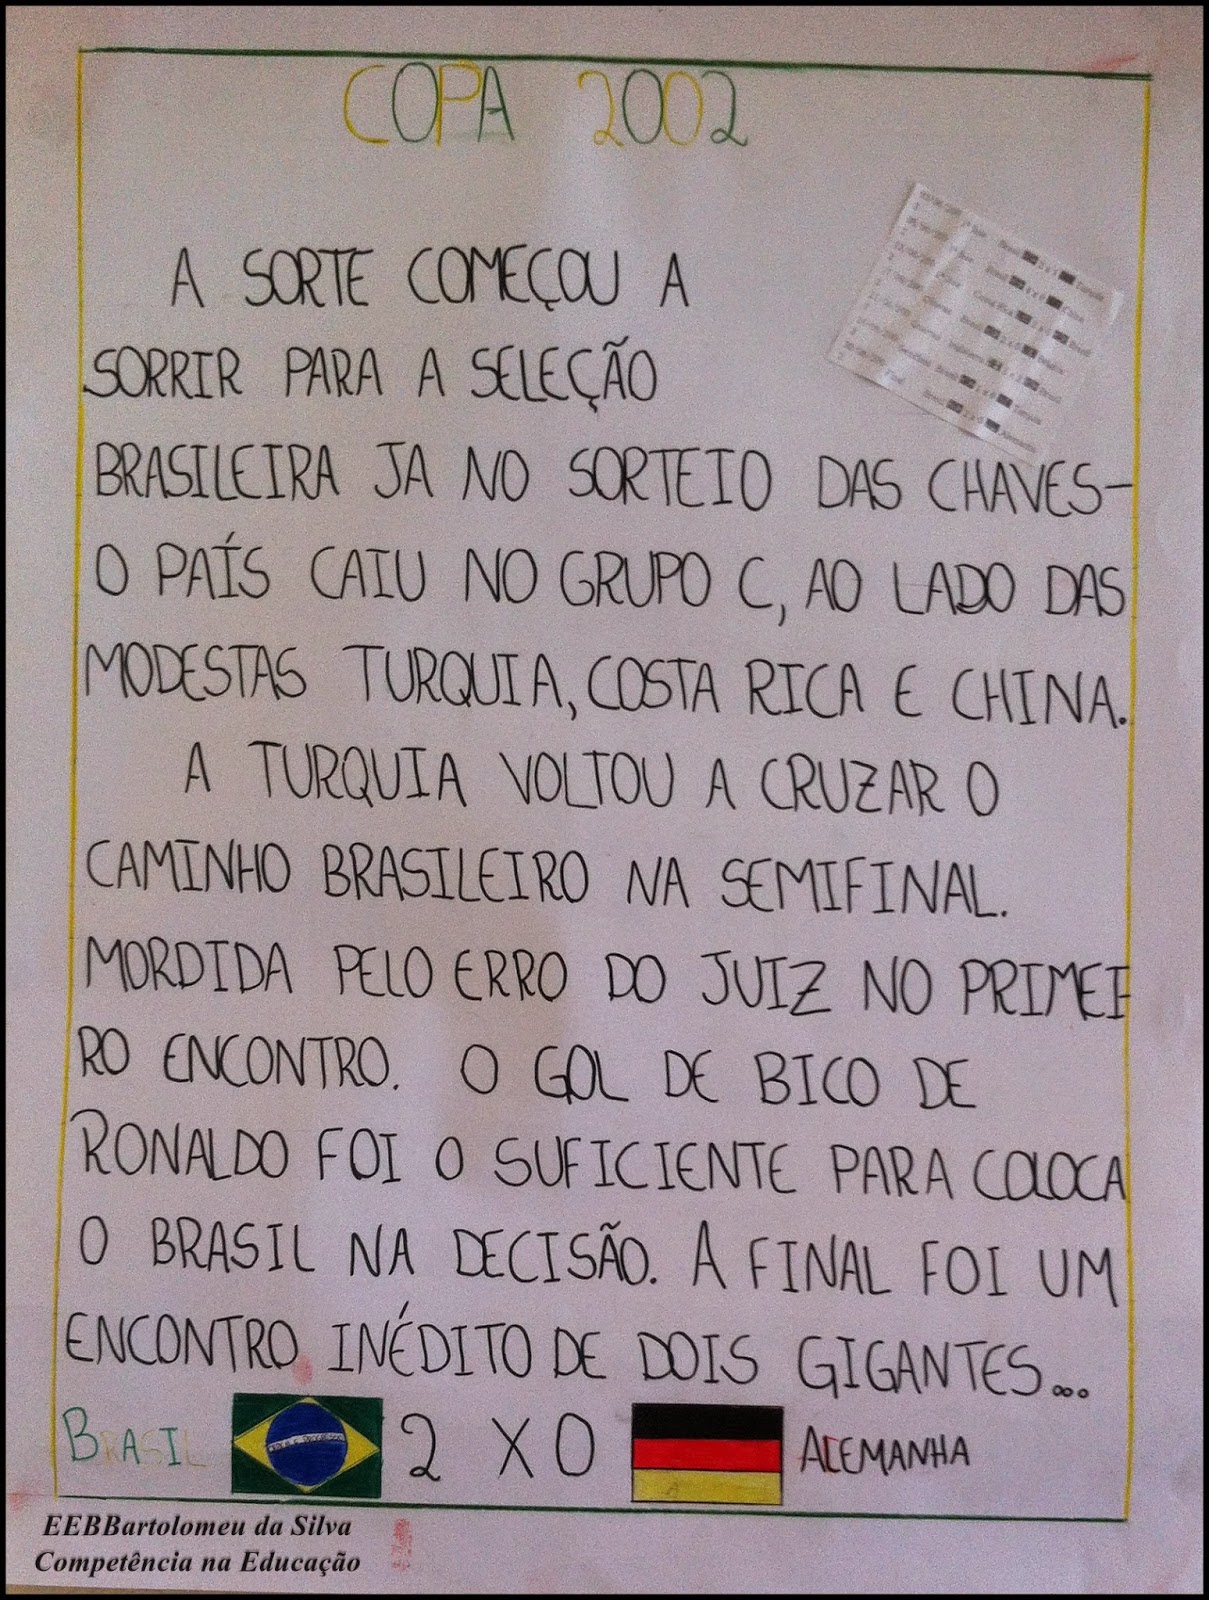 COPA 2002
A SORTE COMEÇOU A
SORRIR PARA A SELEÇÃO
BRASILEIRA JA NO SORTEIO DAS CHAVES-
O PAÍS CAIU NO GRUPO C, AO LADO DAS
MODESTAS TURQUIA, COSTA RICA E CHINA.
A TURQUIA VOLTOU A CRUZAR O
CAMINHO BRASILEIRO NA SEMIFINAL.
MORDIDA PELO ERRO DO JUIZ NO PRIMEI-
RO ENCONTRO. O GOL DE BICO DE
RONALDO FOI O SUFICIENTE PARA COLOCA
O BRASIL NA DECISÃO. A FINAL FOI UM
ENCONTRO INÉDITO DE DOIS GIGANTES...
BRASIL 2 X 0 ALEMANHA
EEBBartolomeu da Silva
Competência na Educação